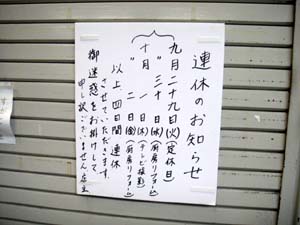 連休のお知らせ
九月二十九日(火)(定休日)
〃三十日(水)(厨房リフォーム)
十月一日(木)(テレビ撮影)
〃二日(金)(厨房リフォーム)
以上、四日間連休
させていただきます。
御迷惑をお掛けして
申し訳ございません。店主